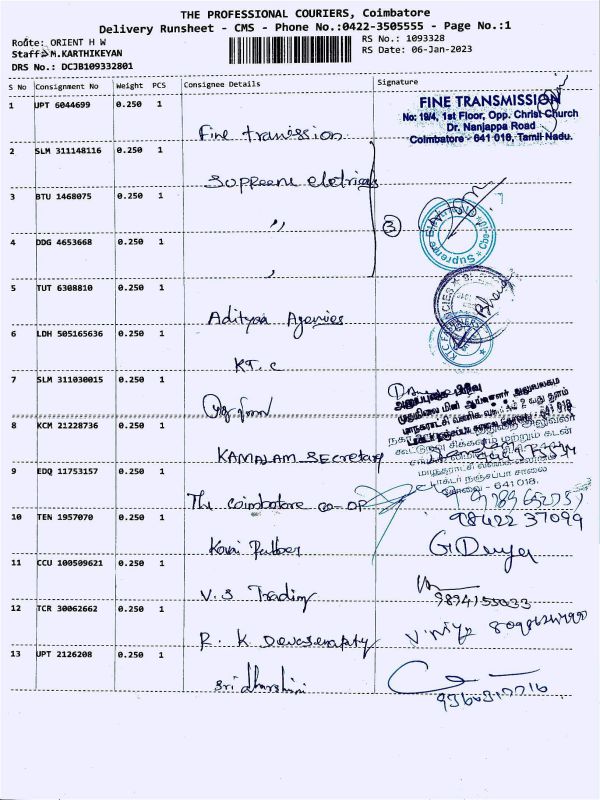 THE PROFESSIONAL COURIERS, Coimbatore
Delivery Runsheet - CMS - Phone No.:0422-3505555 - Page No.:1
Route: ORIENT H W
RS No.: 1093328
Staff: M.KARTHIKEYAN
RS Date: 06-Jan-2023
DRS No.: DCJB109332801
S No Consignment No Weight PCS Consignee Details Signature
1 UPT 6044699 0.250 1
FINE TRANSMISSION
No: 19/4, 1st Floor, Opp. Christ Church
Dr. Nanjappa Road
Coimbatore - 641 018, Tamil Nadu.
Fine tranission
2 SLM 311148116 0.250 1
Supreene eletricas
3 BTU 1468075 0.250 1
"
3
4 DDG 4653668 0.250 1
5 TUT 6308810 0.250 1
Adityaa Agencies
6 LDH 505165636 0.250 1
KT. C
7 SLM 311030015 0.250 1
8 KCM 21228736 0.250 1
KAMALAM Secretary
9 EDQ 11753157 0.250 1
கோவை - 641 018.
The coimbatore co-op
10 TEN 1957070 0.250 1
98422 37099
Kovai Rubber
G Divya
11 CCU 100509621 0.250 1
V. S Trading
12 TCR 30062662 0.250 1
R. K
13 UPT 2126208 0.250 1
Sri dharshini